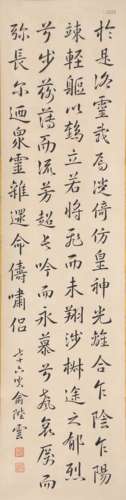 於是洛靈感焉徙倚仿皇神光離合乍陰乍陽
竦輕軀以鶴立若將飛而未翔涉椒途之郁烈
兮步蘅薄而流芳超長吟而永慕兮聲哀厲而
彌長尔迺衆靈雜遝命儔嘯侶
七十六叟俞陛雲